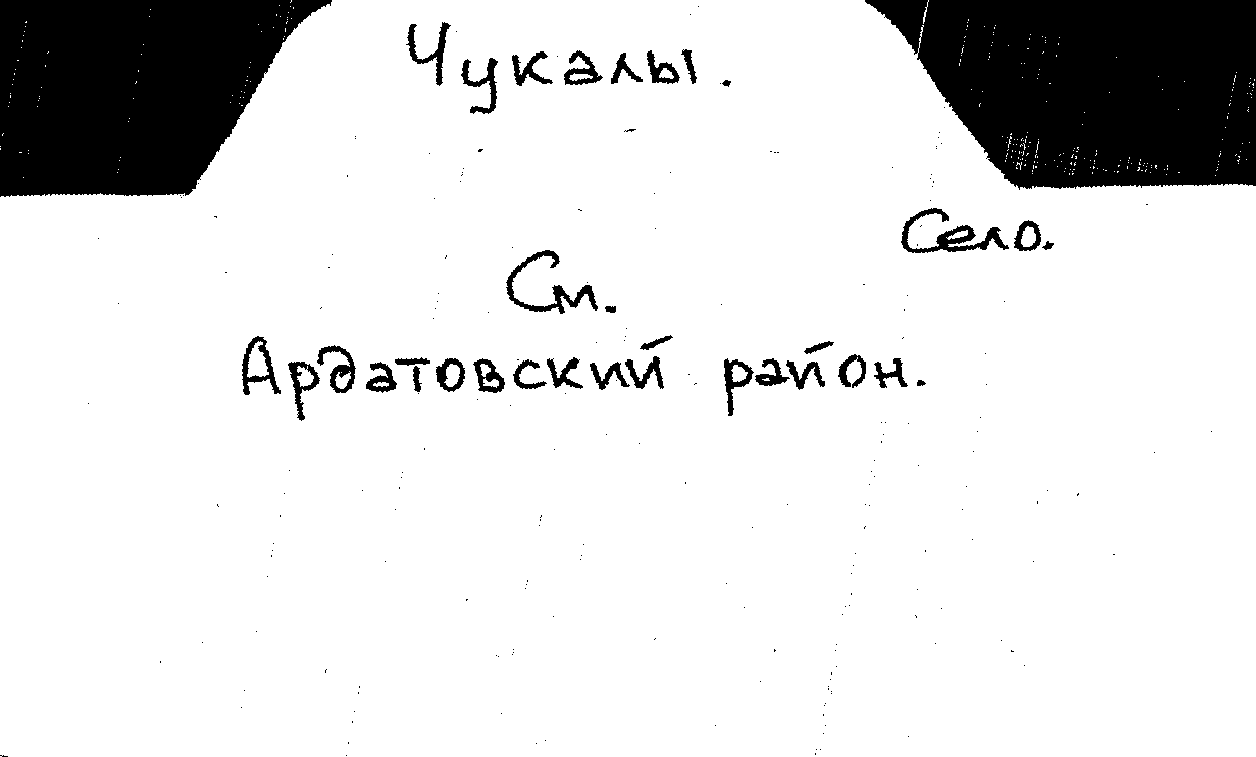 Чукалы.
Село.
См.
Ардатовский район.